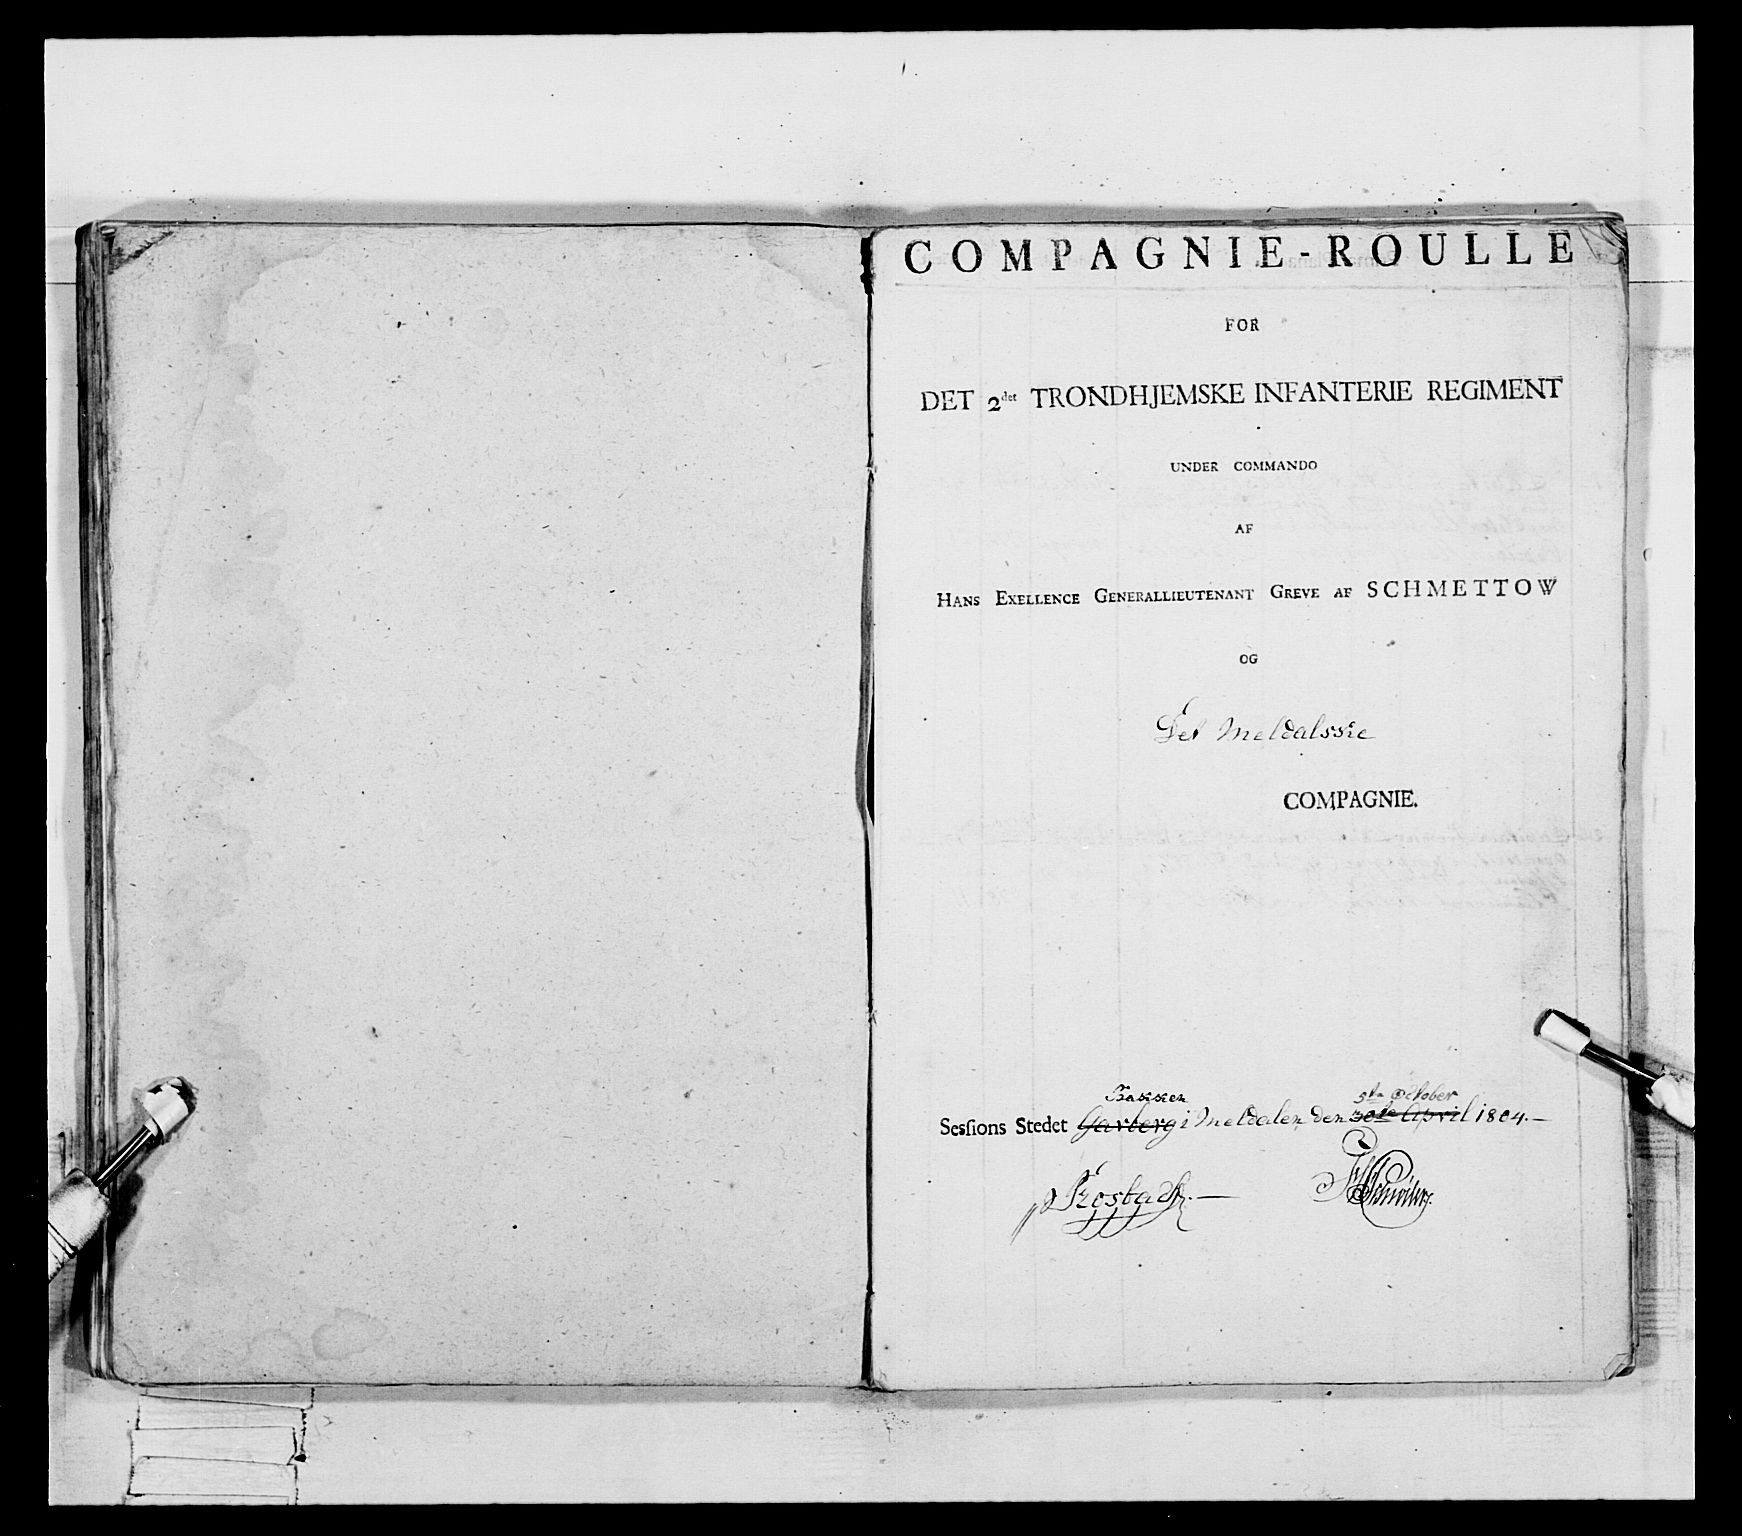 COMPAGNIE-ROULLE
FOR
DET 2det TRONDHJEMSKE INFANTERIE REGIMENT
UNDER COMMANDO
AF
HANS EXELLENCE GENERALLIEUTENANT GREVE AF SCHMETTOW
OG
Det Meldalsske
COMPAGNIE.
Bakken 5te October
Sesſions Stedet Garberg i Meldalen den 30te April 1804.—